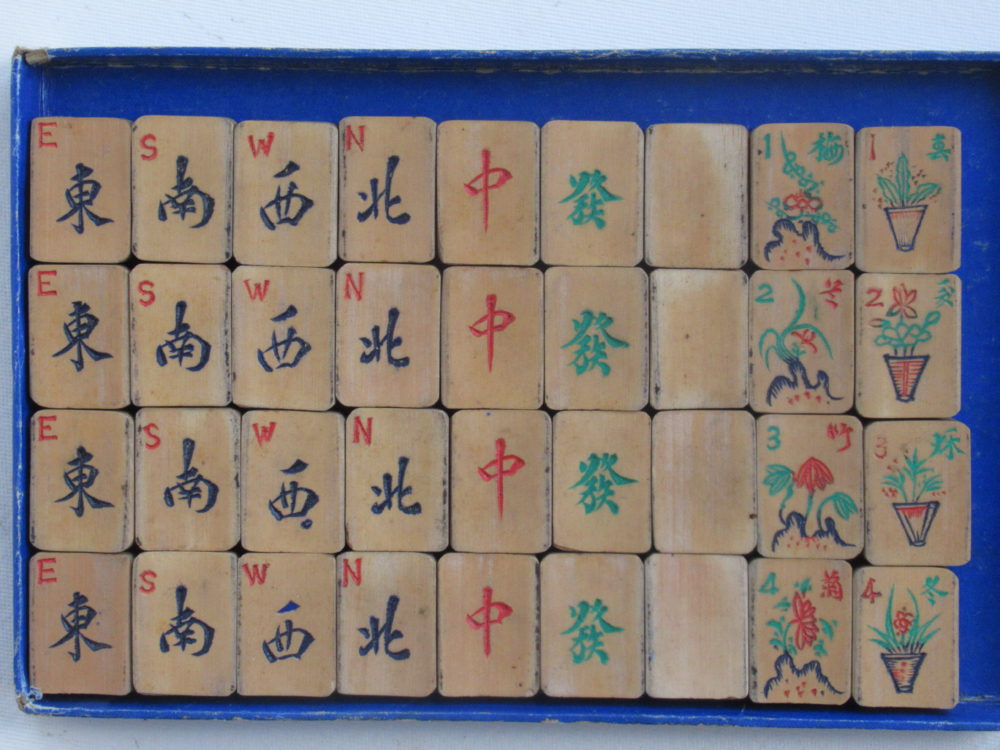 E 東 S 南 W 西 N 北 中 發 1 梅 1
E 東 S 南 W 西 N 北 中 發 2 2
E 東 S 南 W 西 N 北 中 發 3 竹 3
E 東 S 南 W 西 N 北 中 發 4 菊 4 冬